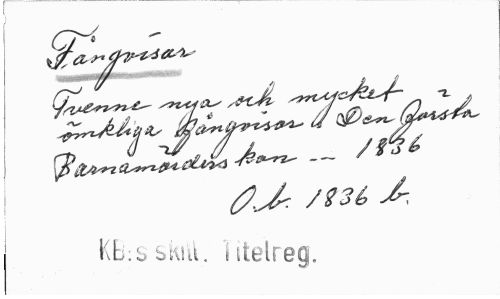 Fångvisor
Tvenne nya och mycket
ömkliga Fångvisor. Den Första
Barnamörderskan --- 1836
O.b. 1836 b.
KB:s skill. Titelreg.